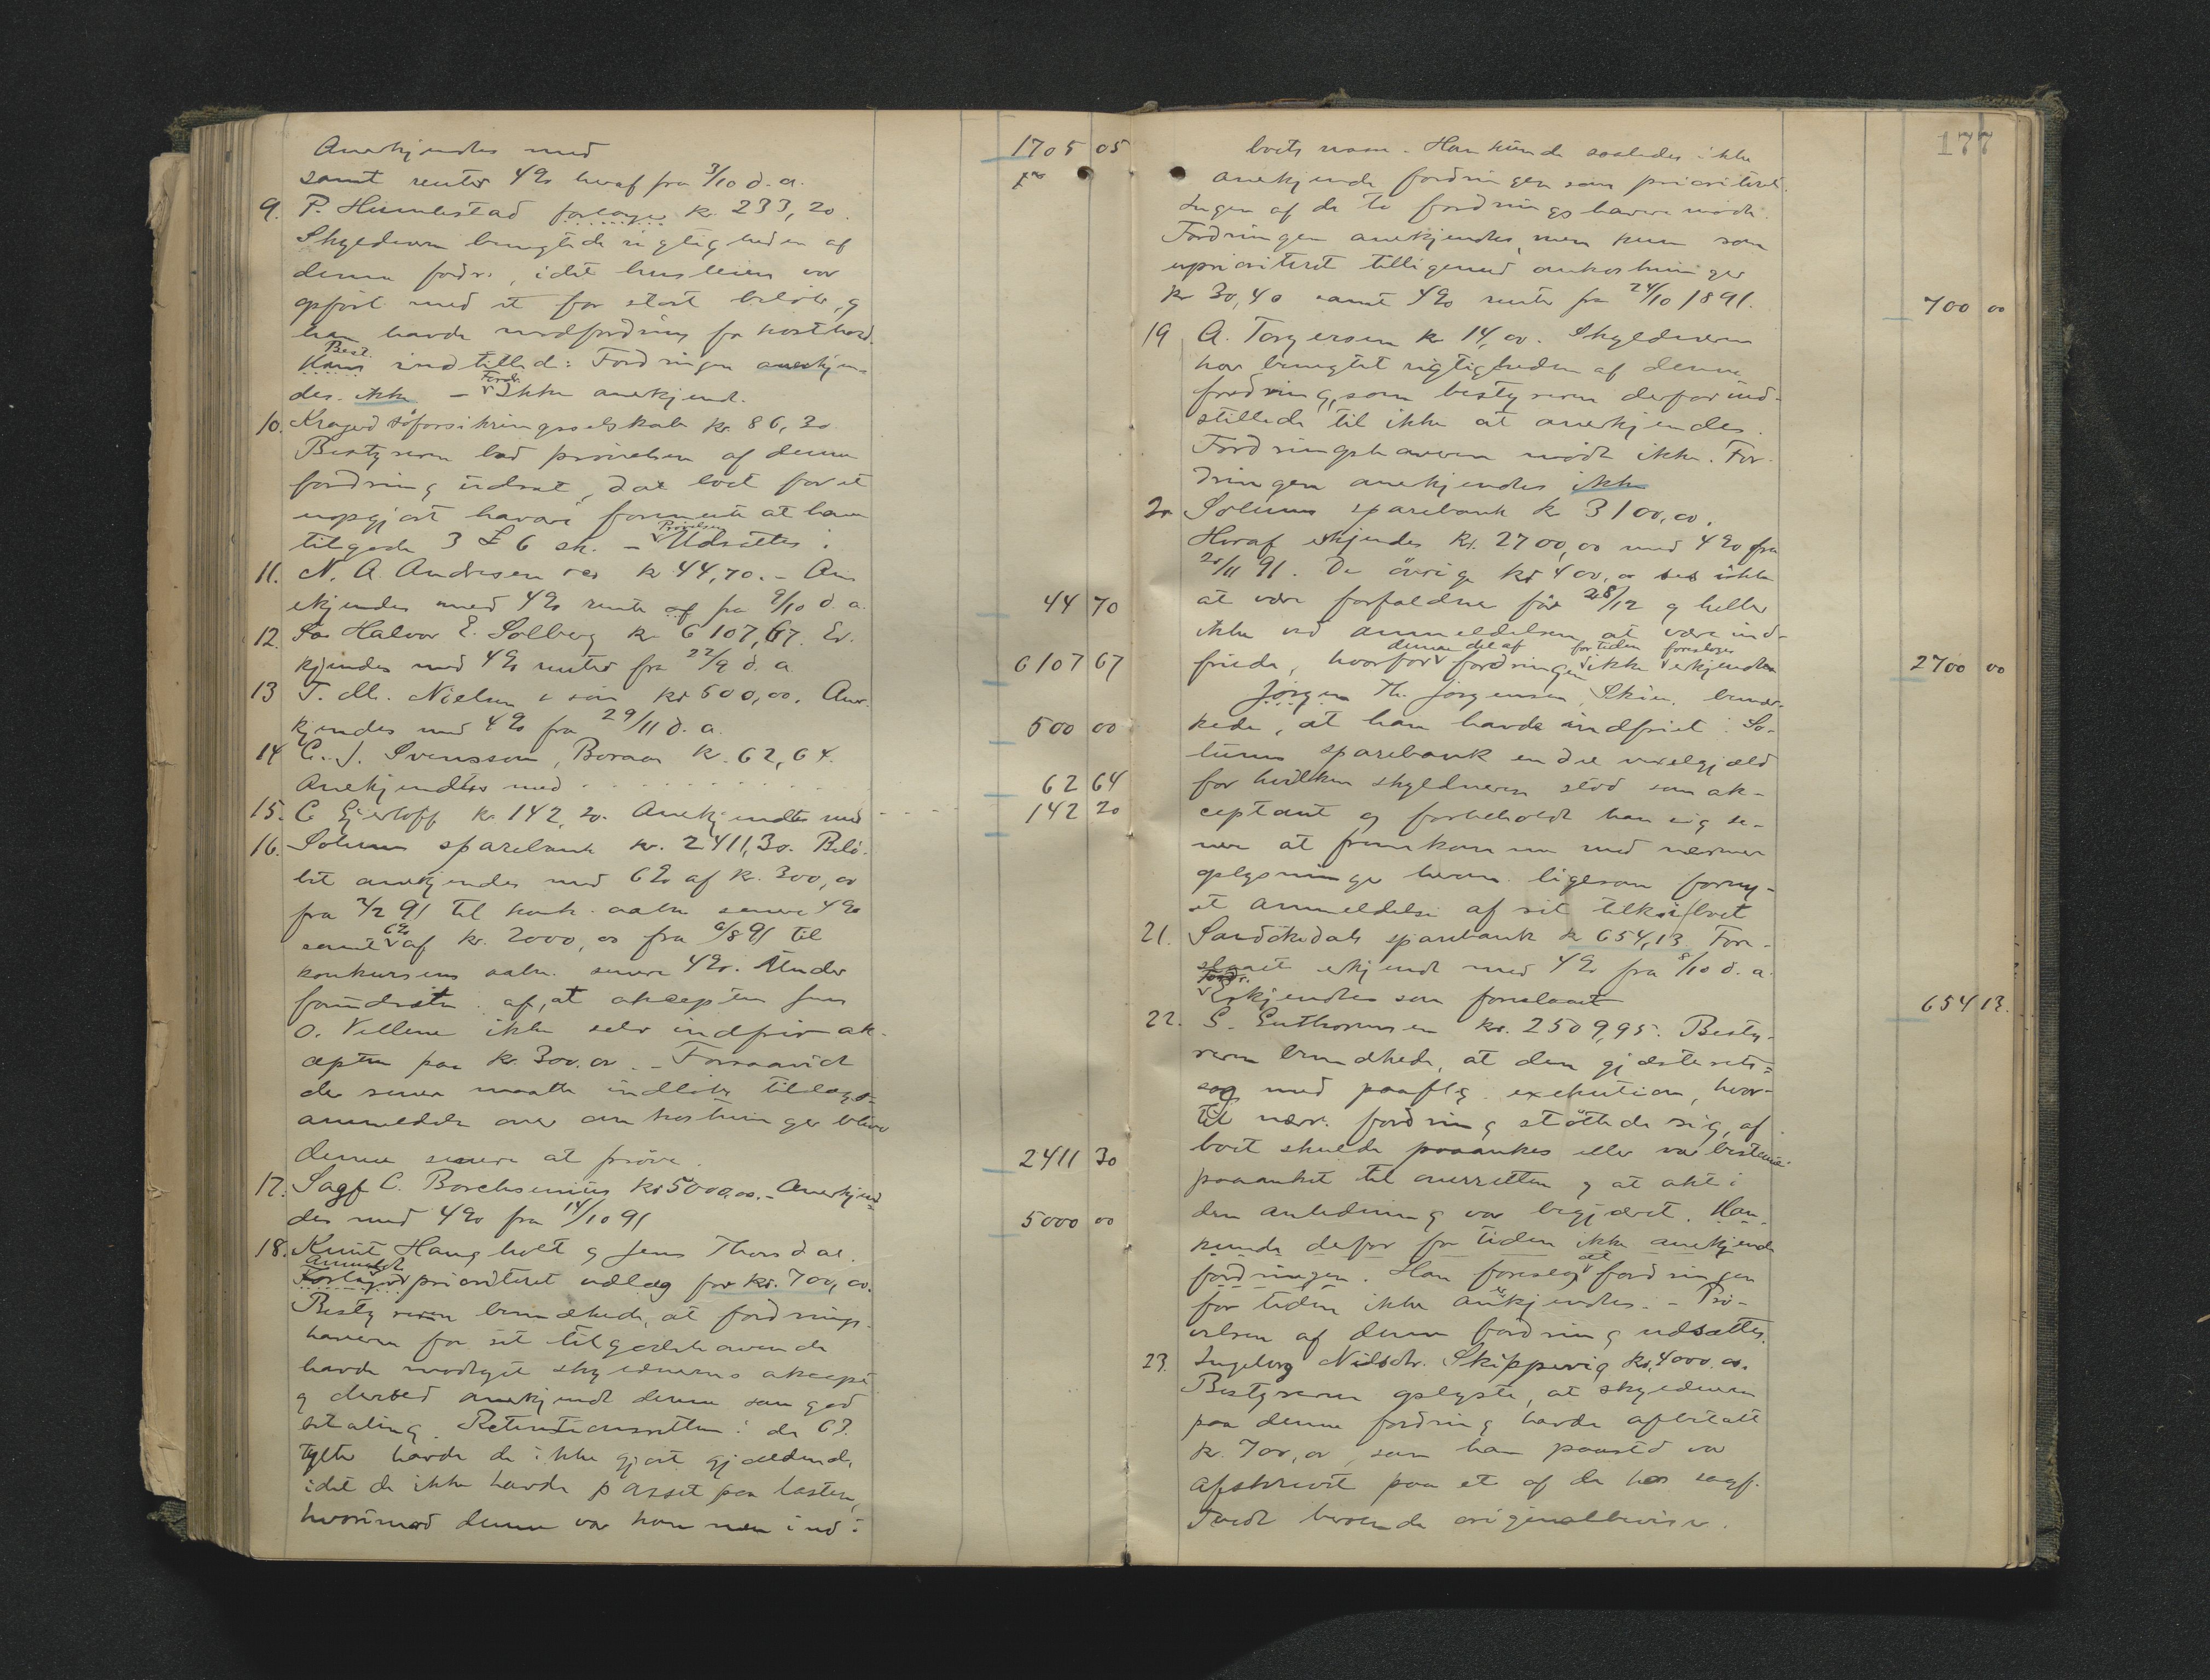 Anerkjendtes med 1705 05
samt renter 4% heraf fra 3/10 d. a.
9. P. Humlestad forlager kr. 233,20.
Skyldneren benegtede rigtigheden af
denne fordr., idet husleien var
opført med et for stort beløb, og
han havde modfordring for kosthold.
Best.
Hans indstilled: Fordringen anerkjen-
Fordr.
des ikke - Ikke anerkjendt.
10. Kragerø söforsikringsselskab kr. 86,30
Bestyreren bad prøvelsen af denne
fordring udsat, da boet for et
uopgjort havari formente at have
Prøvelsen
tilgode 3 £ 6 sh. - Udsættes.
11. N. A. Andresen kr 44,70. - An-
erkjendes med 4% rente af fra 9/10 d. a. 44 70
12. Halvor E. Solberg kr 6107,67. Er-
kjendes med 4% renter fra 22/9 d. a. 6107 67
13 T. M. Nielsen & søn kr 500,00. Aner-
kjendes med 4% fra 29/11 d. a. 500 00
14 C. J. Svensson, Boraas kr. 62,64.
Anerkjendtes med 62 64
15. C Gjerloff kr. 142,20. Anerkjendtes med 142 20
16. Solums sparebank kr. 2411,30. Belö-
bet anerkjendes med 6% af kr. 300,00
fra 7/2 91 til konk. aabn. senere 4%
6%
samt af kr. 2000,00 fra 6/8 91 til
konkursens aabn. senere 4%. Under
forudsætn. af, at akcepten Jens
O. Vellene ikke selv indfrir ak-
cepten paa kr. 300.00. - Forsaavidt
der senere maatte indløbe tillægs-
anmeldelse over omkostninger bliver
denne senere at prøve. 2411 30
17. Sagf. C. Borchsenius kr 5000,00. - Anerkjen-
des med 4% fra 14/10 91 5000 00
18. Knut Haugholt og Jens Thorsdal
anmeldt
prioriteret udlæg for kr. 700,00.
Bestyreren bemærkede, at fordrings-
haveren for sit tilgodehavende
havde modtaget skyldnerens akcept
og derved anerkjendt denne som god
betaling. Retentionsretten i de 63
tylter havde de ikke gjort gjældende,
idet de ikke havde passet paa lasten,
hvorimod denne var kommen ind i
177
boets masse. Han kunde saaledes ikke
anerkjende fordringen som prioriteret.
Ingen af de to fordringshavere mødte.
Fordringen anerkjendes, men kun som
uprioriteret tilligemed omkostninger
kr 30,40 samt 4% rente fra 24/10 1891. 700 00
19 A. Torgersen kr 14,00. Skyldneren
har benegtet rigtigheden af denne
fordring, som bestyreren derfor ind-
stillede til ikke at anerkjendes.
Fordringshaveren mødte ikke. For-
dringen anerkjendtes ikke
20 Solums sparebank kr 3100,00.
Heraf erkjendes kr. 2700,00 med 4% fra
20/11 91. De øvrige kr 400,00 sees ikke
at være forfaldne før 28/12 og heller
ikke ved anmeldelsen at være ind-
denne del af for tiden foresloges
friede, hvorfor fordringen ikke erkjendtes 2700 00
Jørgen Th. Jørgensen, Skien, bemær-
kede, at han havde indfriet i So-
lums sparebank en del vexelgjæld
for hvilken skyldneren stod som ak-
ceptant og forbeholdt han sig se-
nere at fremkomme med nærmere
oplysninger herom ligesom forny-
et anmeldelse af sit tilk. i boet
21. Sandøkedals sparebank kr 654,13 Fore-
slaaet erkjendt med 4% fra 8/10 d. a.
Erkjendtes som foreslaaet 654 13.
22. S. Enthomsen kr. 2509,95. Besty-
reren bemærkede, at den gjæsterets-
sag med paaflg. exekution, hvor-
til nærv. fordring støttede sig, af
boet skulde paaankes eller var bestemt
paaanket til overretten og at akt i
den anledning var begjæret. Han
kunde defor for tiden ikke anerkjende
at
fordringen. Han foreslog fordringen
for tiden ikke anerkjendtes. - Prø-
velsen af denne fordring udsættes.
23. Ingeborg Nilsdtr. Skippervig kr. 4000.00.
Bestyreren oplyste, at skyldneren
paa denne fordring havde afbetalt
kr. 700,00, som han paastod var
afskrevet paa et af de hos sagf.
Tvedt beroende originalbeviser.